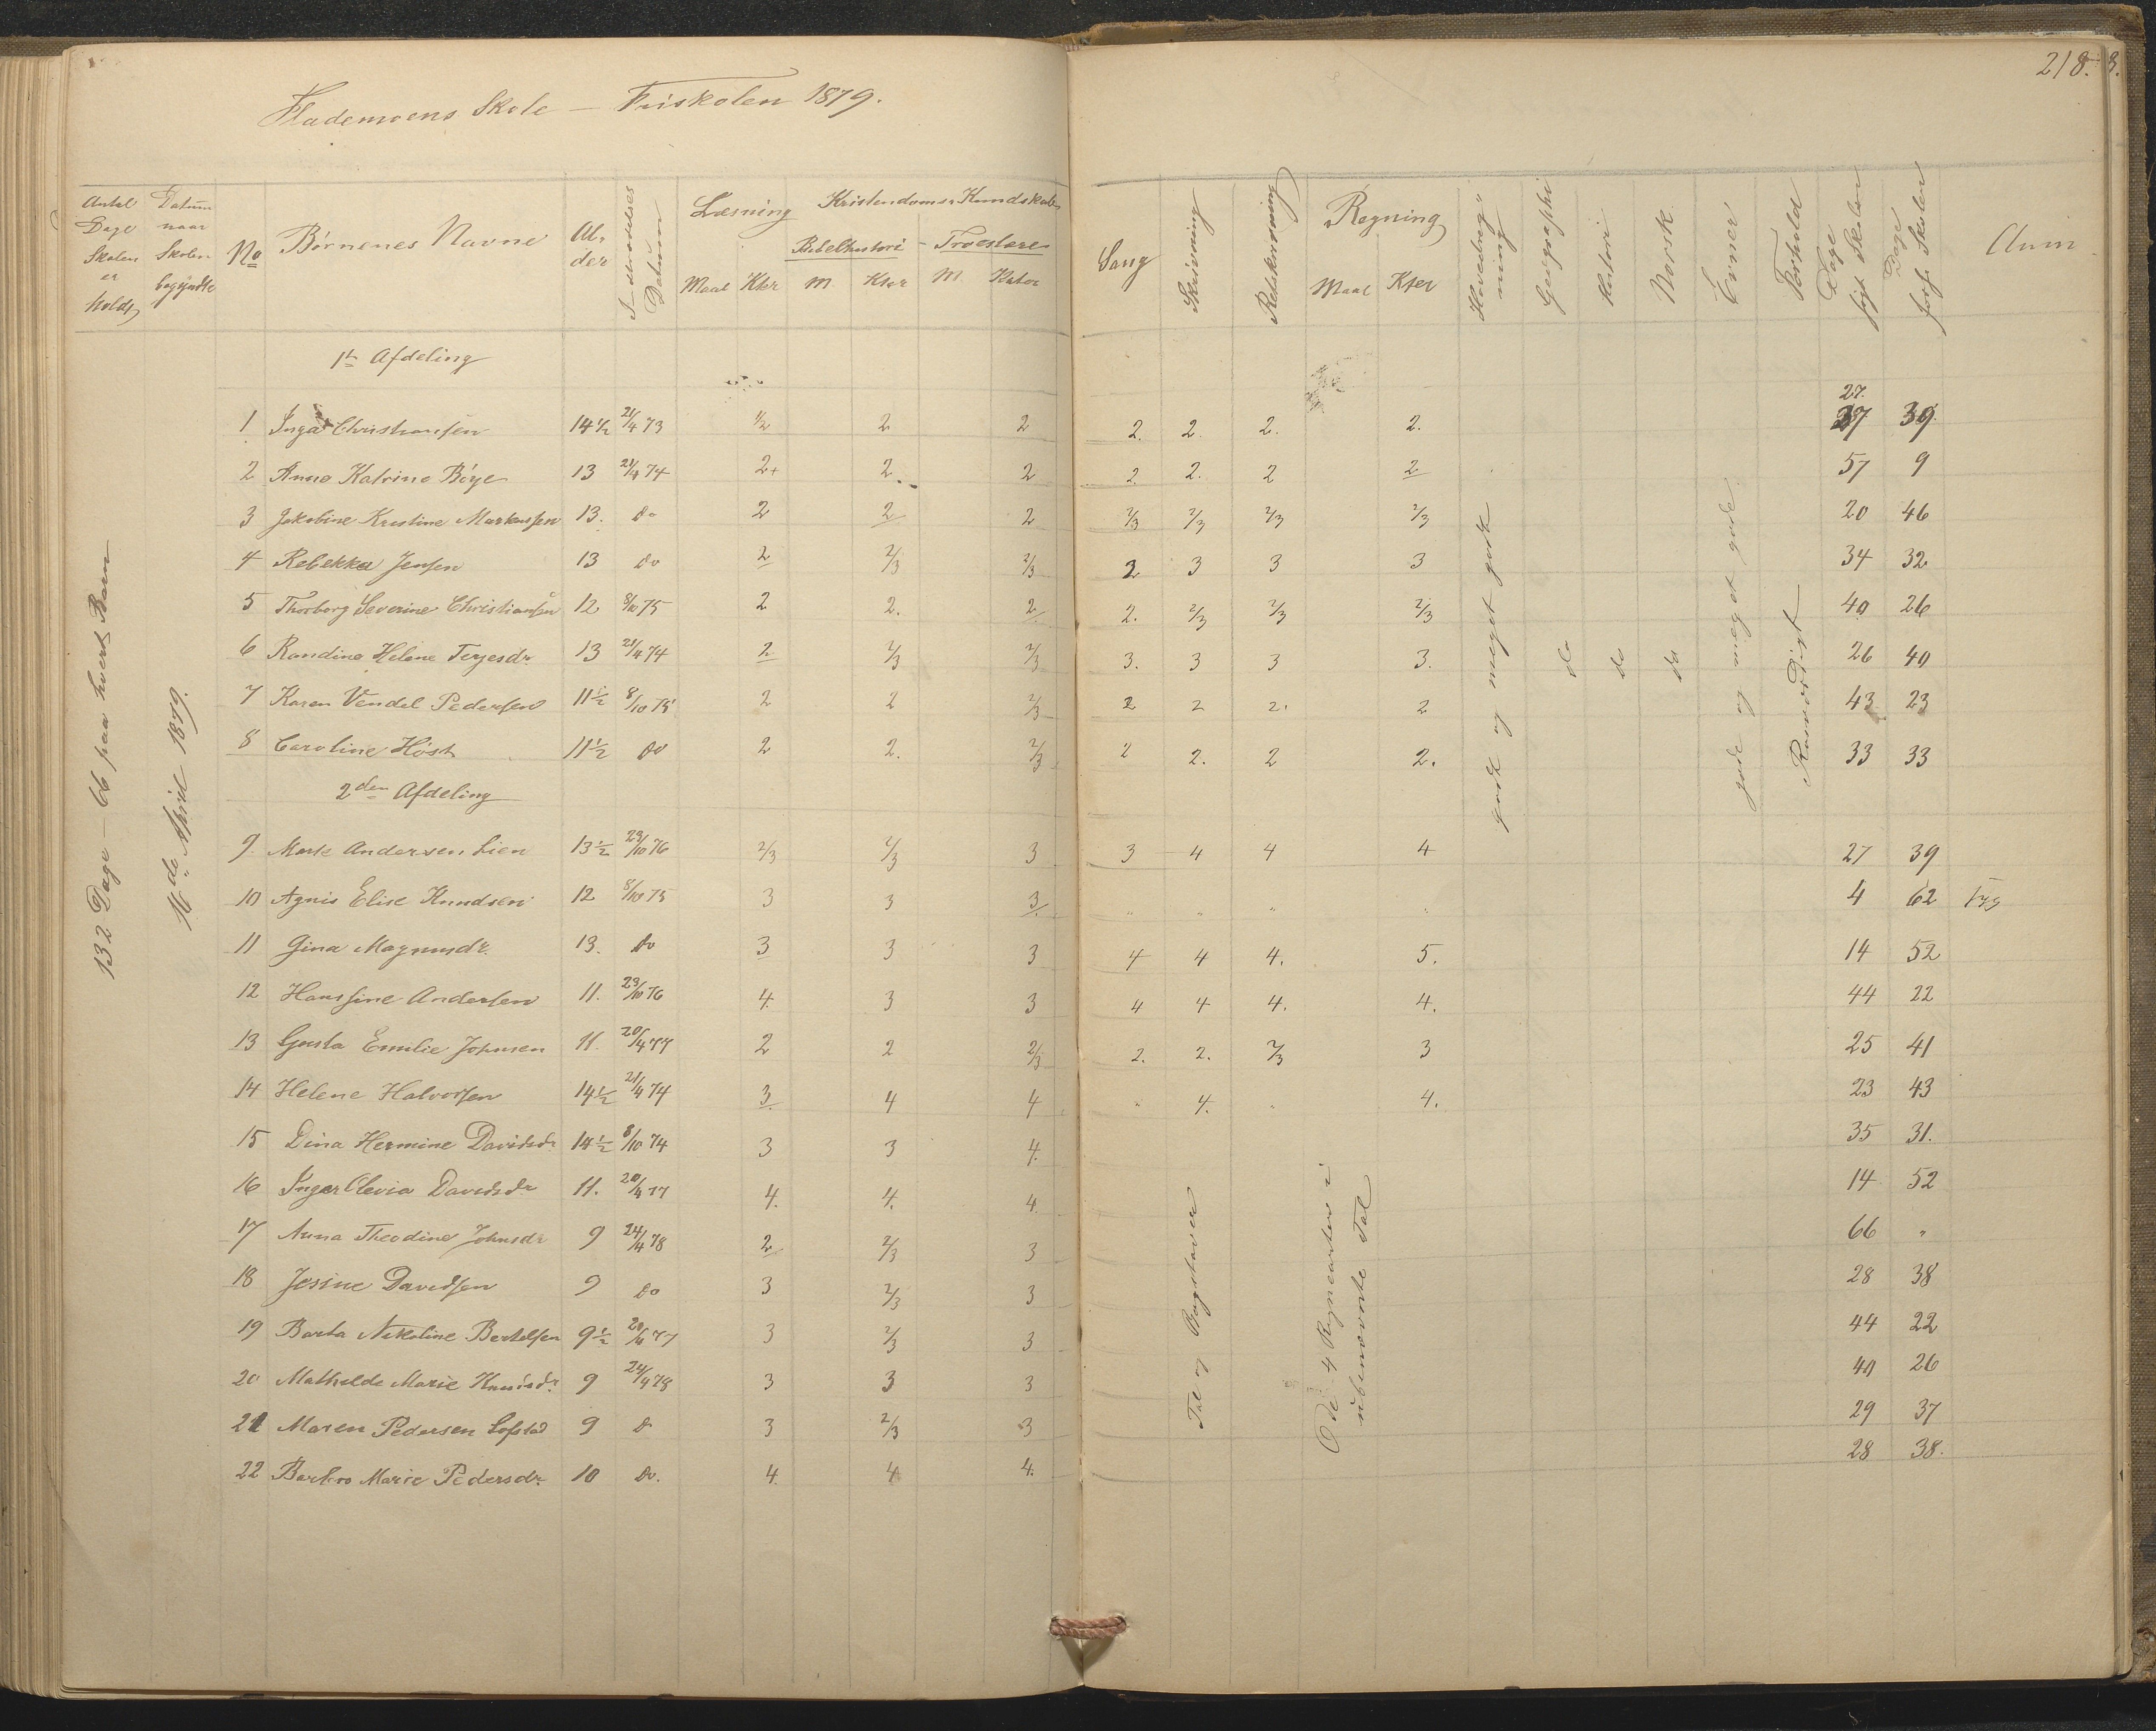 218.
Flademoens Skole — Friskolen 1879.
Antal Dage Skolen er holdt
Datum naar Skolen begyndte
No
Børnenes Navne
Alder
Indtrædelses Datum
Læsning
Maal Kter
Kristendoms Kundskab
Bibelhistori - Troeslære
M Kter M Kakter
Sang
Skrivning
Retskrivning
Regning
Maal Kter
Geographi
Histori
Norsk
Evner
Forhold
Dage søgt Skolen
Dage fors Skolen
Anm
132 Dage - 66 paa hvert Barn
16de April 1879.
1ste Afdeling
1 Inga Christiansen 14½ 21/4 73 ½ 2 2 2. 2. 2. 2. 27. 37 39
2 Anne Katrine Böye 13 21/4 74 2+ 2 2 2 2. 2 2 57 9
3 Jakobine Kristine Markussen 13. do 2 2 2 2/3 2/3 2/3 2/3 20 46
4 Rebekka Jensen 13 do 2 2/3 2/3 2 3 3 3 34 32
5 Thorborg Severine Christiansen 12 8/10 75 2 2. 2 2. 2/3 2/3 2/3 40 26
6 Randine Helene Terjesdr. 13 21/4 74 2 2/3 2/3 3. 3 3 3. 26 40
7 Karen Vendel Pedersen 11½ 8/10 75 2 2 2/3 2 2 2. 2 43 23
8 Caroline Høst 11½ do 2 2. 2/3 2 2. 2 2. 33 33
godt og meget godt
do
do
do
gode og meget gode
Rosværdigt
2den Afdeling
9. Marte Andersen Lien 13½ 23/10 76 2/3 2/3 3 3 4 4 4 27 39
10 Agnis Elise Knudsen 12 8/10 75 3 3 3 " " " " 4 62
11 Gina Magnusdr. 13. do 3 3 3 4 4 4. 5. 14 52
12 Hansine Andersen 11. 23/10 76 4. 3 3 4 4 4. 4. 44 22
13 Gusta Emilie Johnsen 11. 20/4 77 2 2 2/3 2. 2. 2/3 3 25 41
14 Helene Halvorsen 14½ 21/4 74 3. 4 4 " 4. " 4. 23 43
15 Dina Hermine Davidsdr 14½ 8/10 74 3 3 4. 35 31.
16 Inger Olevia Davidsdr 11. 20/4 77 4. 4. 4. 14 52
17 Anna Theodine Johnsdr 9 24/4 78 2 2/3 3 66 "
18 Josine Davidsen 9 do 3 2/3 3 28 38
19 Barta Nikoline Bertelsen 9½ 20/4 77 3 2/3 3 44 22
20 Mathilde Marie Knudsdr. 9 24/4 78 3 3 3 40 26
21 Maren Pedersen Lofstad 9 do 3 2/3 3 29 37
22 Barbro Marie Pedersdr. 10 do. 4. 4 4. 28 38.
Tal og Bogstaver
De 4 Regnearter i ubenævnte Tal